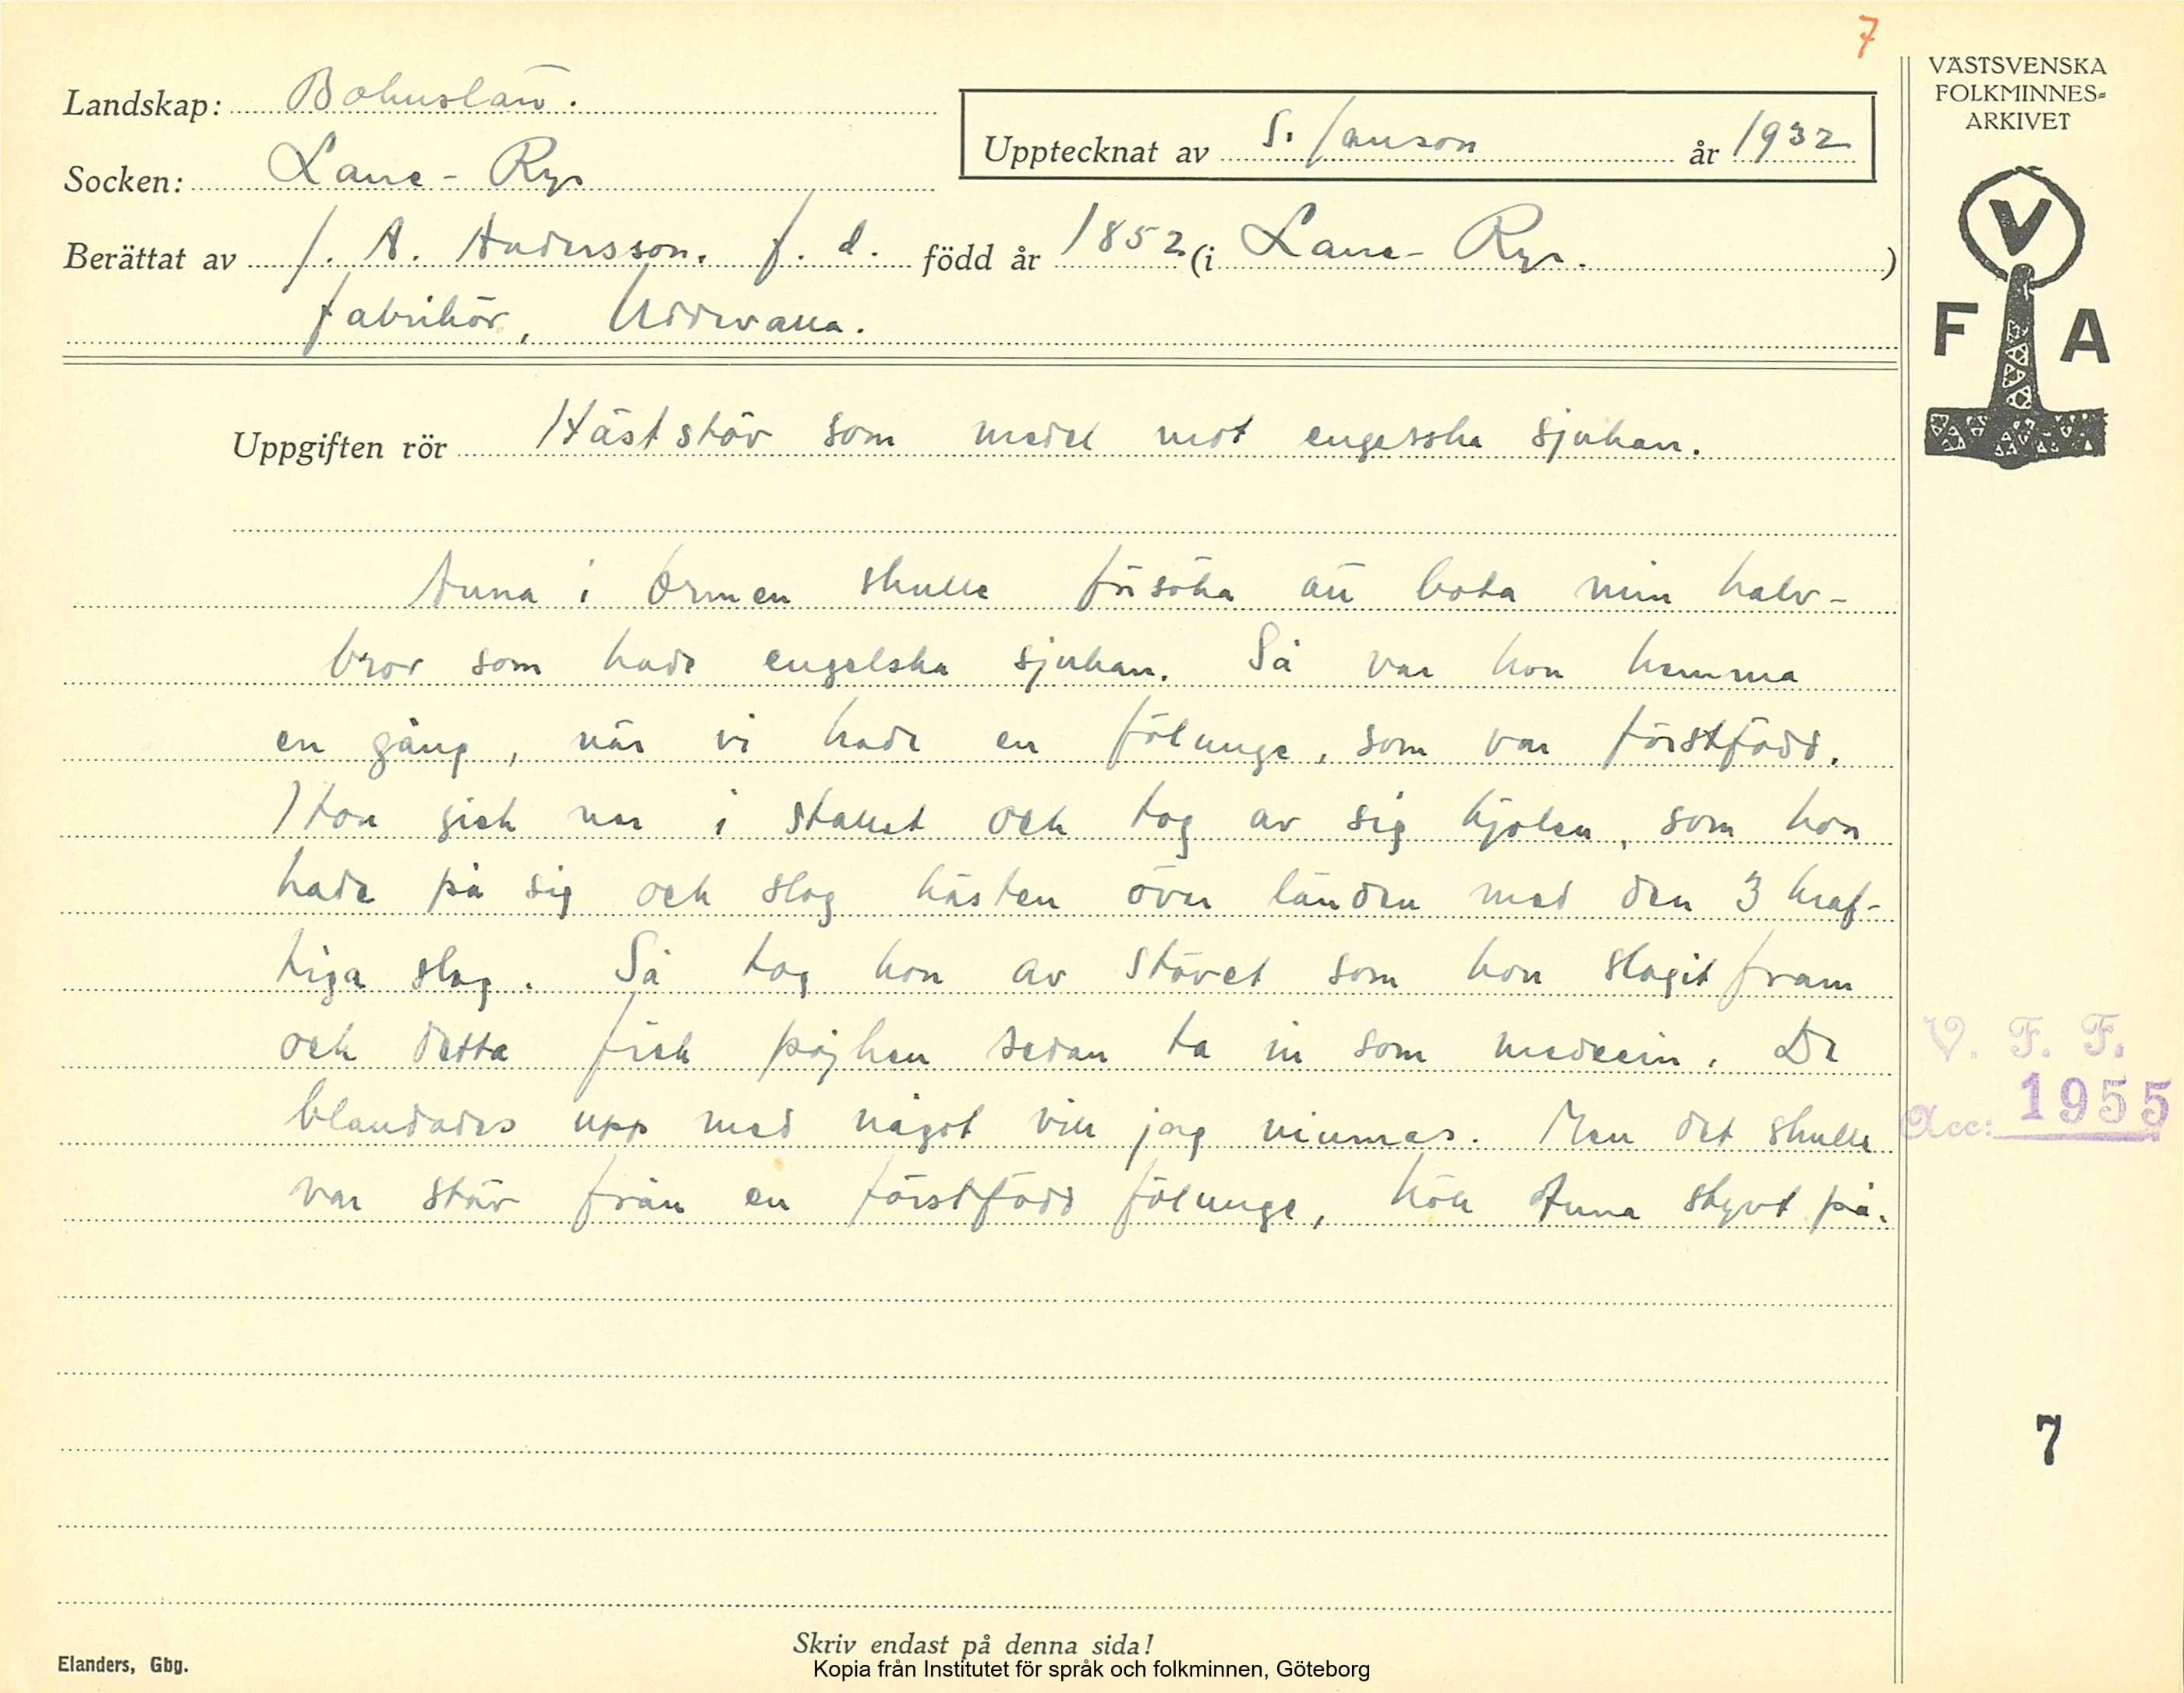 7
VÄSTSVENSKA
FOLKMINNES=
ARKIVET
Landskap: Bohuslän.
Upptecknat av S. Janson år 1932
Socken: Lane-Ryr
Berättat av J. A. Andersson. f. d. född år 1852 (i Lane-Ryr.)
fabrikör, Uddevalla.
V
F A
Uppgiften rör Häststöv som medel mot engelska sjukan.
Anna i Ormen skulle försöka att bota min halv-
bror som hade engelska sjukan. Så var hon hemma
en gång, när vi hade en fölunge, som var förstfödd.
Hon gick ner i stallet och tog av sig kjolen, som hon
hade på sig och slog hästen över länden med den 3 kraf-
tiga slag. Så tog hon av stövet som hon slagit fram
och detta fick pojken sedan ta in som medecin. De
blandades upp med något vill jag minnas. Men det skulle
var stöv från en förstfödd fölunge, höll Anna styvt på.
V. F. F.
Acc: 1955
7
Skriv endast på denna sida!
Elanders, Gbg.
Kopia från Institutet för språk och folkminnen, Göteborg